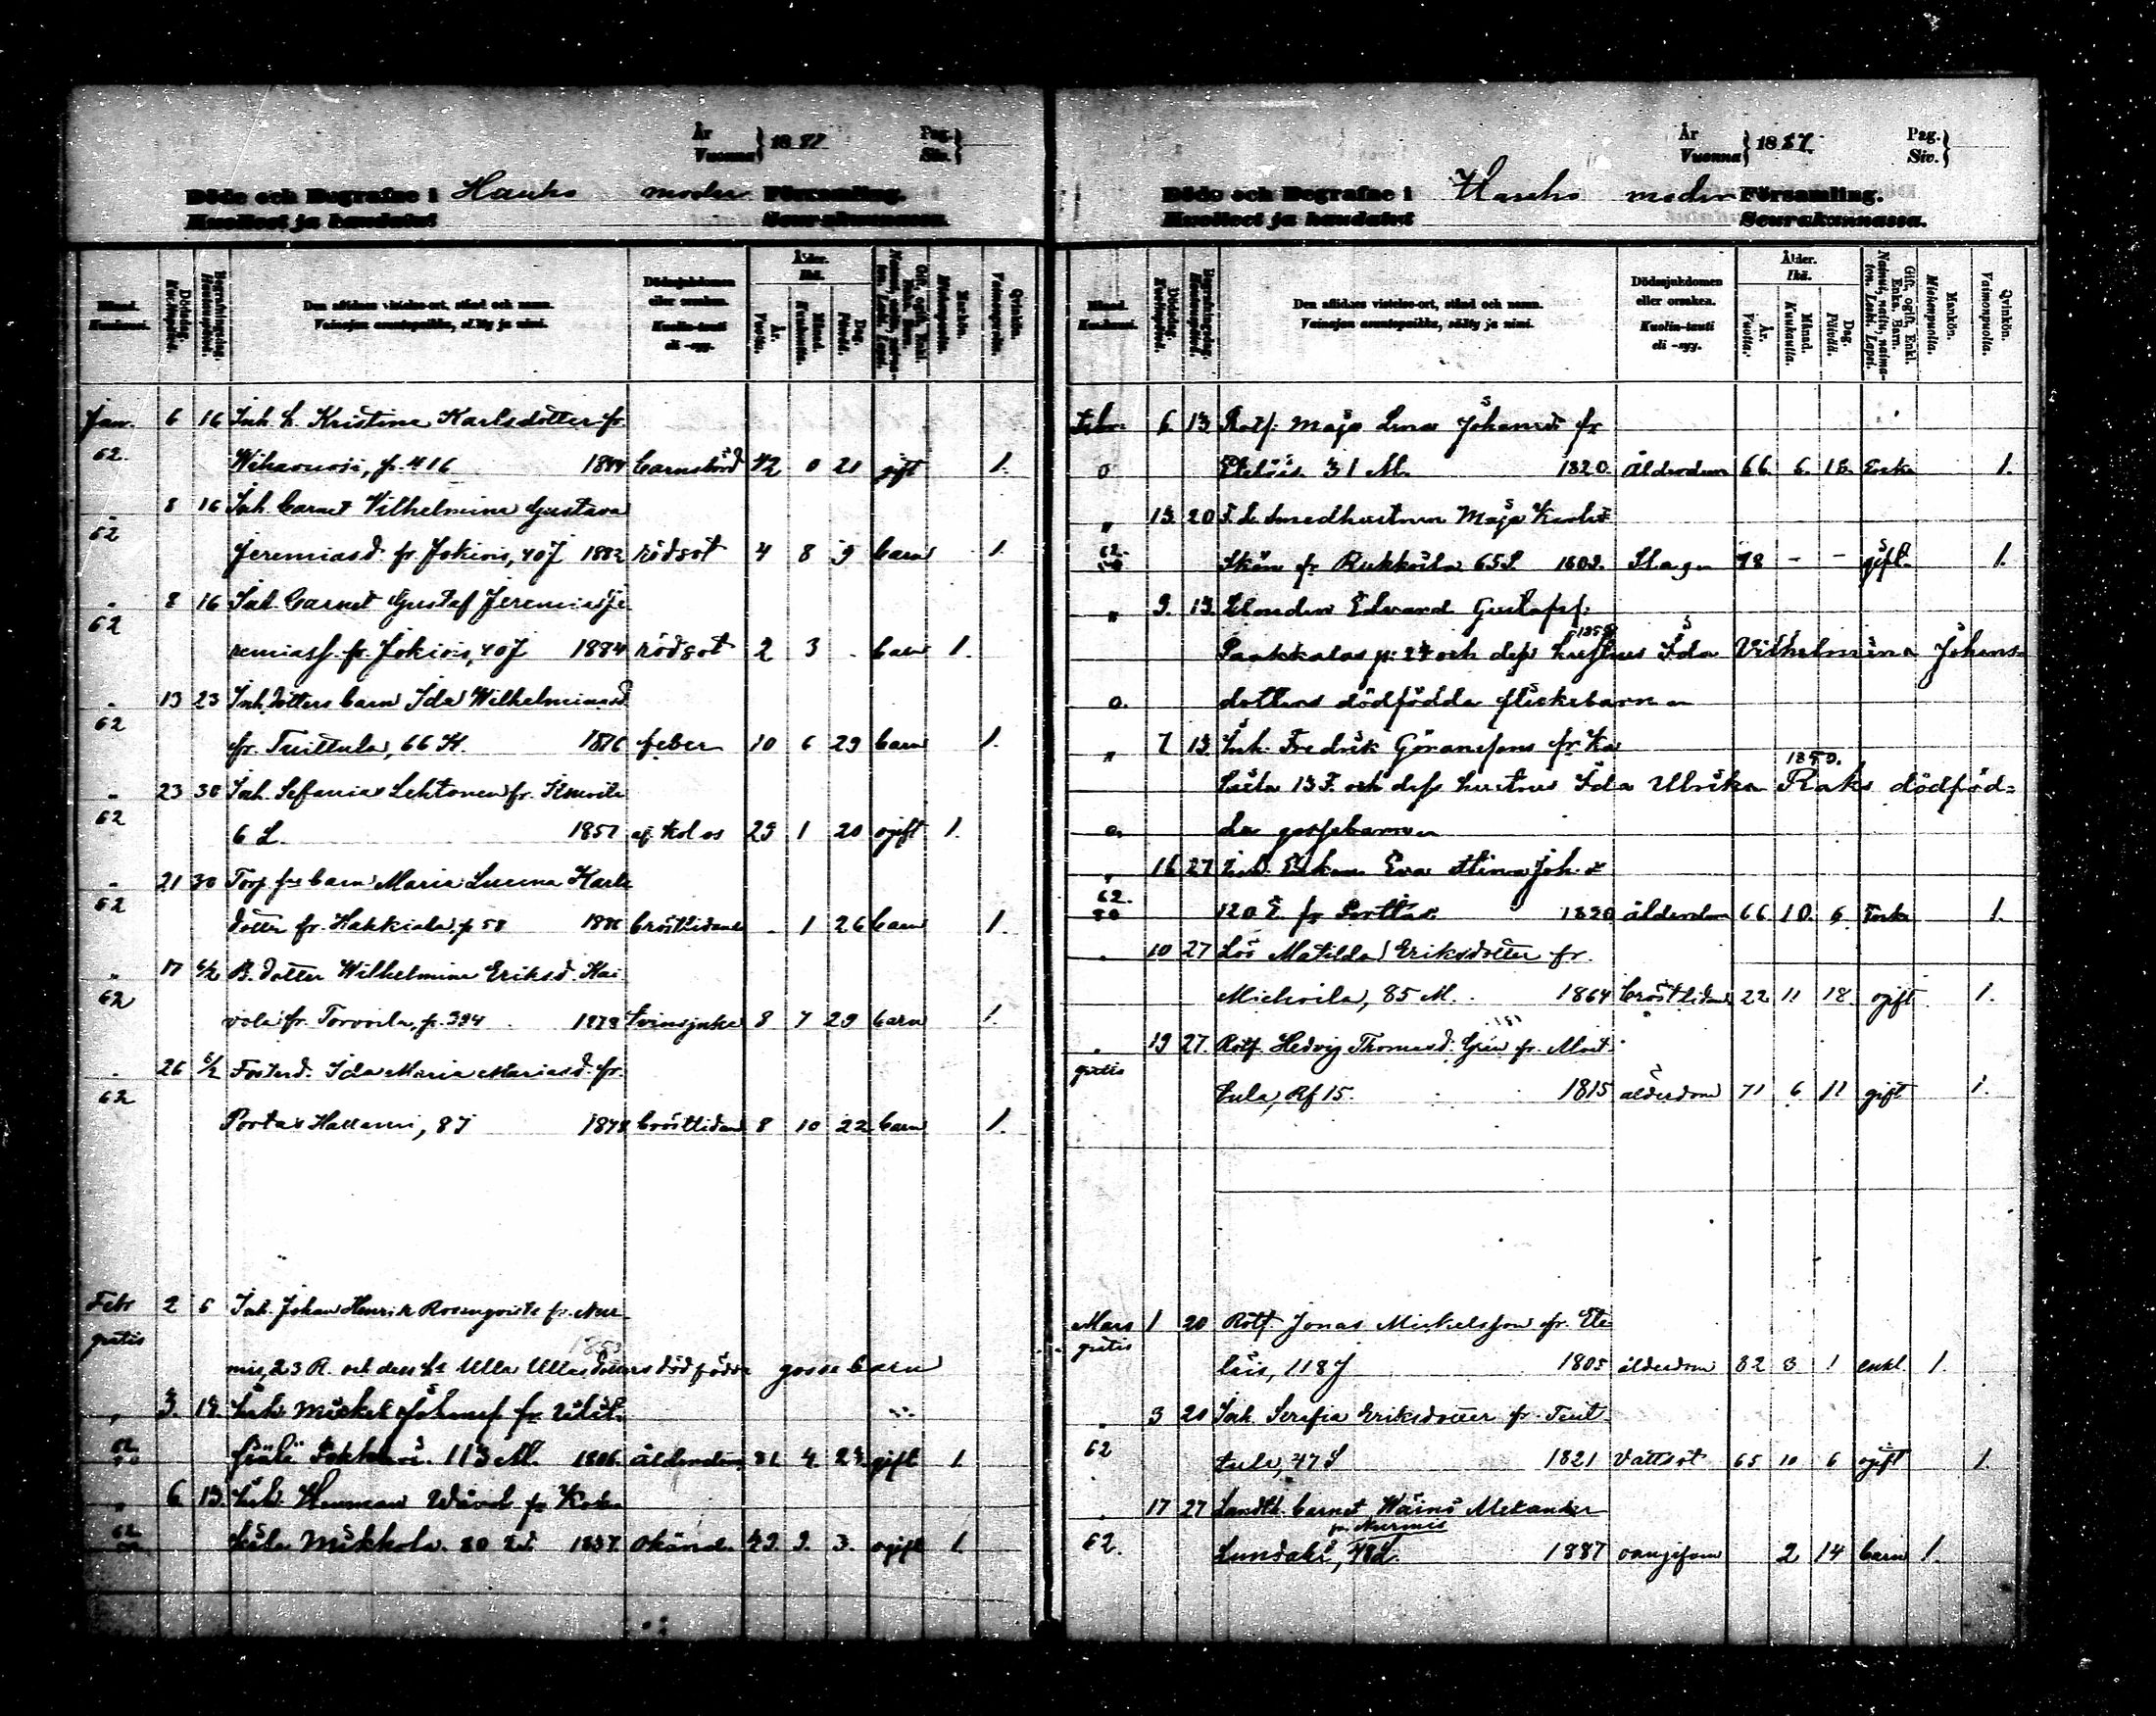 År
Vuonna } 1887
Pag.
Siv. }
Döde och Begrafne i Hauho moder Församling.
Kuolleet ja haudatut Seurakunnassa.
Månad. Kuukausi.
Dödsdag. Kuolinpäivä.
Begrafningsdag. Hautauspäivä.
Den aflidnes vistelse-ort, stånd och namn.
Vainajan asuntopaikka, sääty ja nimi.
Dödssjukdomen eller orsaken.
Kuolin-tauti eli -syy.
Ålder. Ikä.
År. Vuotta.
Månad. Kuukautta.
Dag. Päivää.
Gift, ogift, Enkl. Enka. Barn.
Mankön. Miehenpuolta.
Qvinkön. Vaimonpuolta.
Jan. 6 16 Inh. h. Kristina Karlsdotter fr.
62. Wihavuosi, p. 416 1844 barnsbörd 42 0 21 gift 1.
" 8 16 Inh. barnet Vilhelmina Gustava
62 Jeremiasd. fr. Jokiois, 40 J 1882 rödsot 4 8 9 barn 1.
" 8 16 Inh. barnet Gustaf Jeremias Je
62 remiass. fr. Jokiois, 40 J 1884 rödsot 2 3 - barn 1.
" 13 23 Inh. dotters barn Ida Wilhelminasd
62 fr. Tuittula, 66 H. 1876 feber 10 6 29 barn 1.
" 23 30 Inh. Sefanias Lehtonen fr.
62 6 L. 1857 af kol os 29 1 20 ogift 1.
" 21 30 Torp. barn Maria Lucina Karls
62 dotter fr. Hakkiala, p 58 1886 bröstlidande - 1 26 barn 1.
" 17 6/2 B. dotter Wilhelmina Eriksd. Kai
62 vola fr. Torvoila, p. 394 1878 8 7 29 barn 1.
" 26 6/2 Fosterd. Ida Maria Mariasd. fr.
62 Portas Hallami, 87 1878 bröstlidand 8 10 22 barn 1.
Febr 2 6 Inh. Johan Henrik Rosenqvists fr. Nur
gratis 1853
mis, 23 R. och dess h. Ulla Ullasdotters dödfödda gosse barn
" 3. 13. Inh. Mickel Johansf. fr.
62. 113 M. 1806. ålderdom 81. 4. 24. gift 1
" 6 13. Inh. Herman fr. Kok
62. kila Mikkola. 80 1837. okänd. 49. 9. 3. ogift 1.
År
Vuonna } 1887.
Pag.
Siv. }
Döde och Begrafne i Hauho moder Församling.
Kuolleet ja haudatut Seurakunnassa.
Månad. Kuukausi.
Dödsdag. Kuolinpäivä.
Begrafningsdag. Hautauspäivä.
Den aflidnes vistelse-ort, stånd och namn.
Vainajan asuntopaikka, sääty ja nimi.
Dödssjukdomen eller orsaken.
Kuolin-tauti eli -syy.
Ålder. Ikä.
År. Vuotta.
Månad. Kuukautta.
Dag. Päivää.
Gift, ogift, Enkl. Enka. Barn.
Mankön. Miehenpuolta.
Qvinkön. Vaimonpuolta.
Febr. 6. 13. Rotf. Maja Lena Johansd. fr
0 Eteläis 31 M. 1820. Ålderdom 66. 6. 18. Enka 1.
" 13. 20 F. d. Smedhustrun Maja Karlsd
62. Skön fr Rukkoila 65 S. 1809. Slag 78 - - gift. 1.
" 9. 13. Edvard Gustafsf.
1858
p. 24 och dess hustrus Ida Vilhelmina Johans-
0. dotters dödfödda flickebarn
" 7 13. Inh. Fredrik Göranssons fr. Ka
1850.
13 F. och dess hustrus Ida Ulrika Raks dödföd=
0. da gossebarn
" 16 27 Enkan Eva Stina Joh. d
62. 120 fr Porttas 1820 ålderdom 66 10. 6. Enka 1.
" 10 27 Lös Matilda Eriksdotter fr.
Michoila, 85 M. 1864 bröstlidand 22 11 18. ogift 1.
" 19 27. Rotf. Hedvig Thomasd. fr. Moit
gratis tula, Rf 15. 1815 ålderdom 71 6 11 gift 1.
Mars 1 20 Rotf. Jonas Mickelsson fr. Ete
gratis läis, 118 J 1805 ålderdom 82 3 1 enkl. 1.
" 3 20 Inh. Serafia Eriksdotter fr. Tuit
62 tula, 47 S 1821 vattsot 65 10 6 ogift 1.
" 17 27 Landtb. barnet Wäinö Alexander
fr. Nurmis
62. Lundahl, 48 L. 1887 2 14 barn 1.